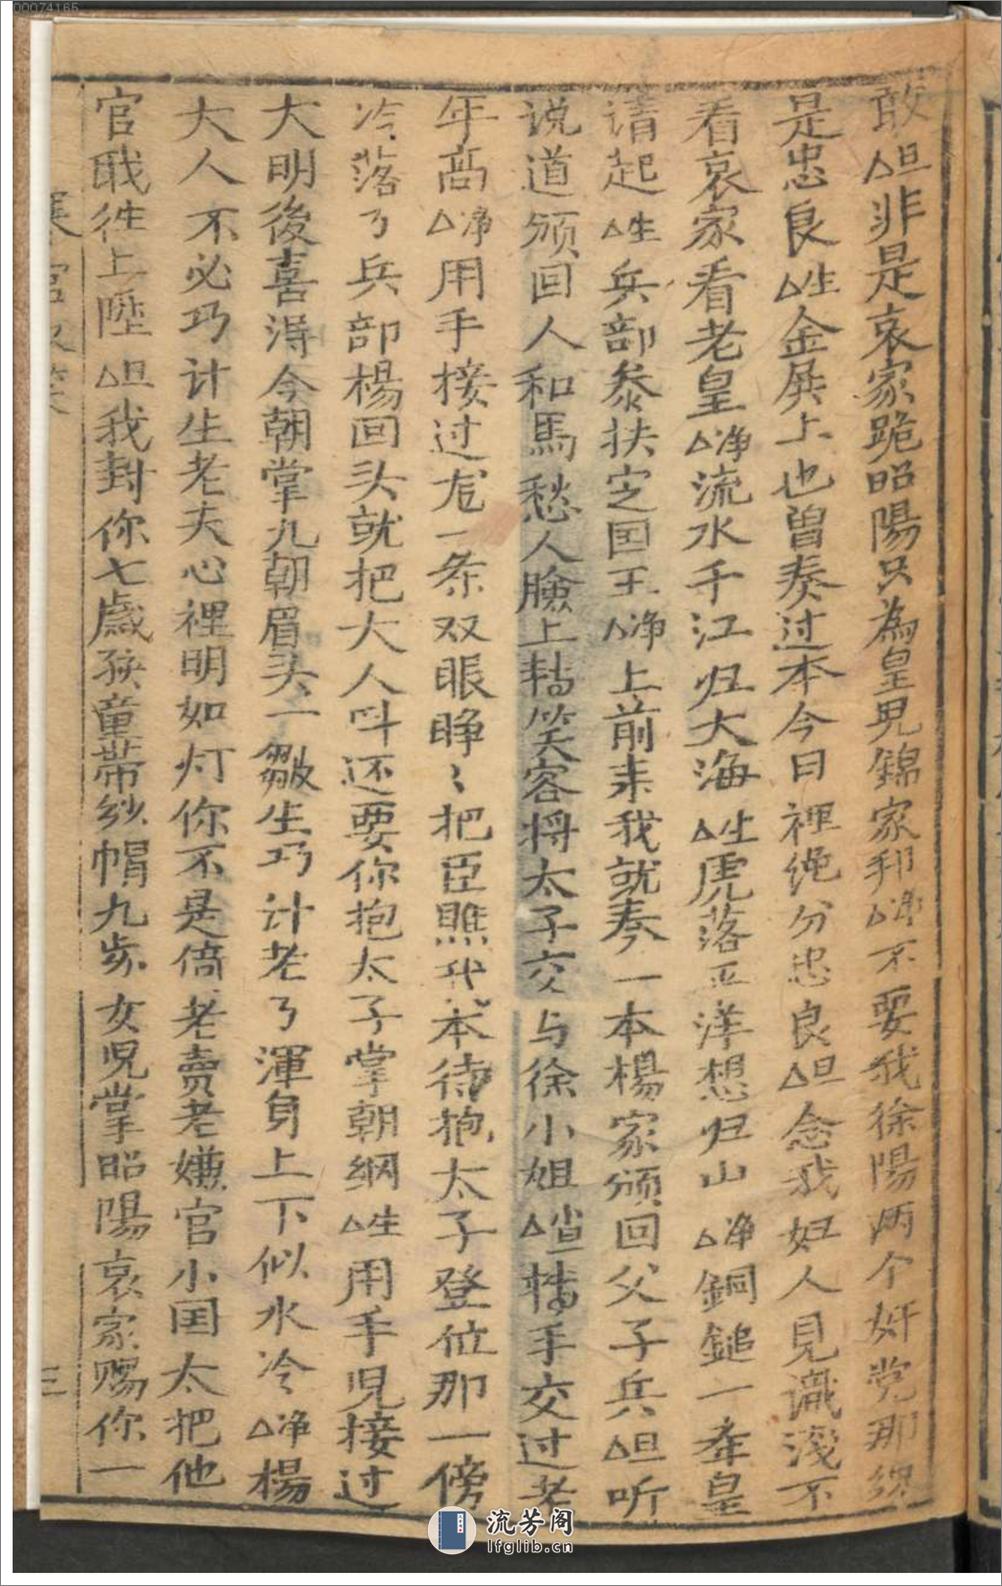 00074165
敢△旦非是哀家跪昭陽只為皇児錦家邦△净不要我徐陽両个奸党那纔
是忠良△生金展上也曽奏过本今日裡绝分忠良△旦念我妇人見識淺不
看哀家看老皇△净流水千江归大海△生虎落平洋想归山△净銅鎚一奉皇
请起△生兵部参扶定国王△净上前来我就奏一本楊家颁回父子兵△旦听
说道颁回人和馬愁人臉上轉笑容将太子交与徐小姐△喳轉手交过老
年高△净用手接过龙一条双眼睁〻把臣瞧我本待抱太子登位那一傍
冷落了兵部楊回头就把大人叫还要你抱太子掌朝綱△生用手児接过
大明後喜得今朝掌九朝眉头一皺生巧计老了渾身上下似水冷△净楊
大人不必巧计生老夫心裡明如灯你不是倚老賣老嫌官小国太把他
官戢徃上陞△旦我封你七歳孩童帯纱帽九岁女児掌昭陽哀家赐你一
三
流芳阁
lfglib.cn